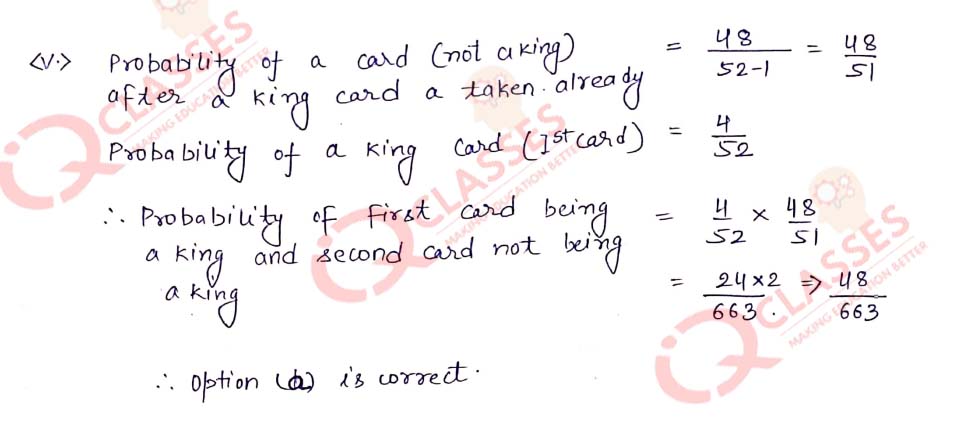 <v.> Probability of a card (not a king) = 48/52-1 = 48/51
after a king card a taken. already
Probability of a king card (1st card) = 4/52
∴ Probability of first card being = 4/52 × 48/51
a king and second card not being
a king = 24×2/663. ⇒ 48/663
∴ option is correct.
IQ CLASSES
MAKING EDUCATION BETTER
IQ CLASSES
MAKING EDUCATION BETTER
IQ CLASSES
MAKING EDUCATION BETTER